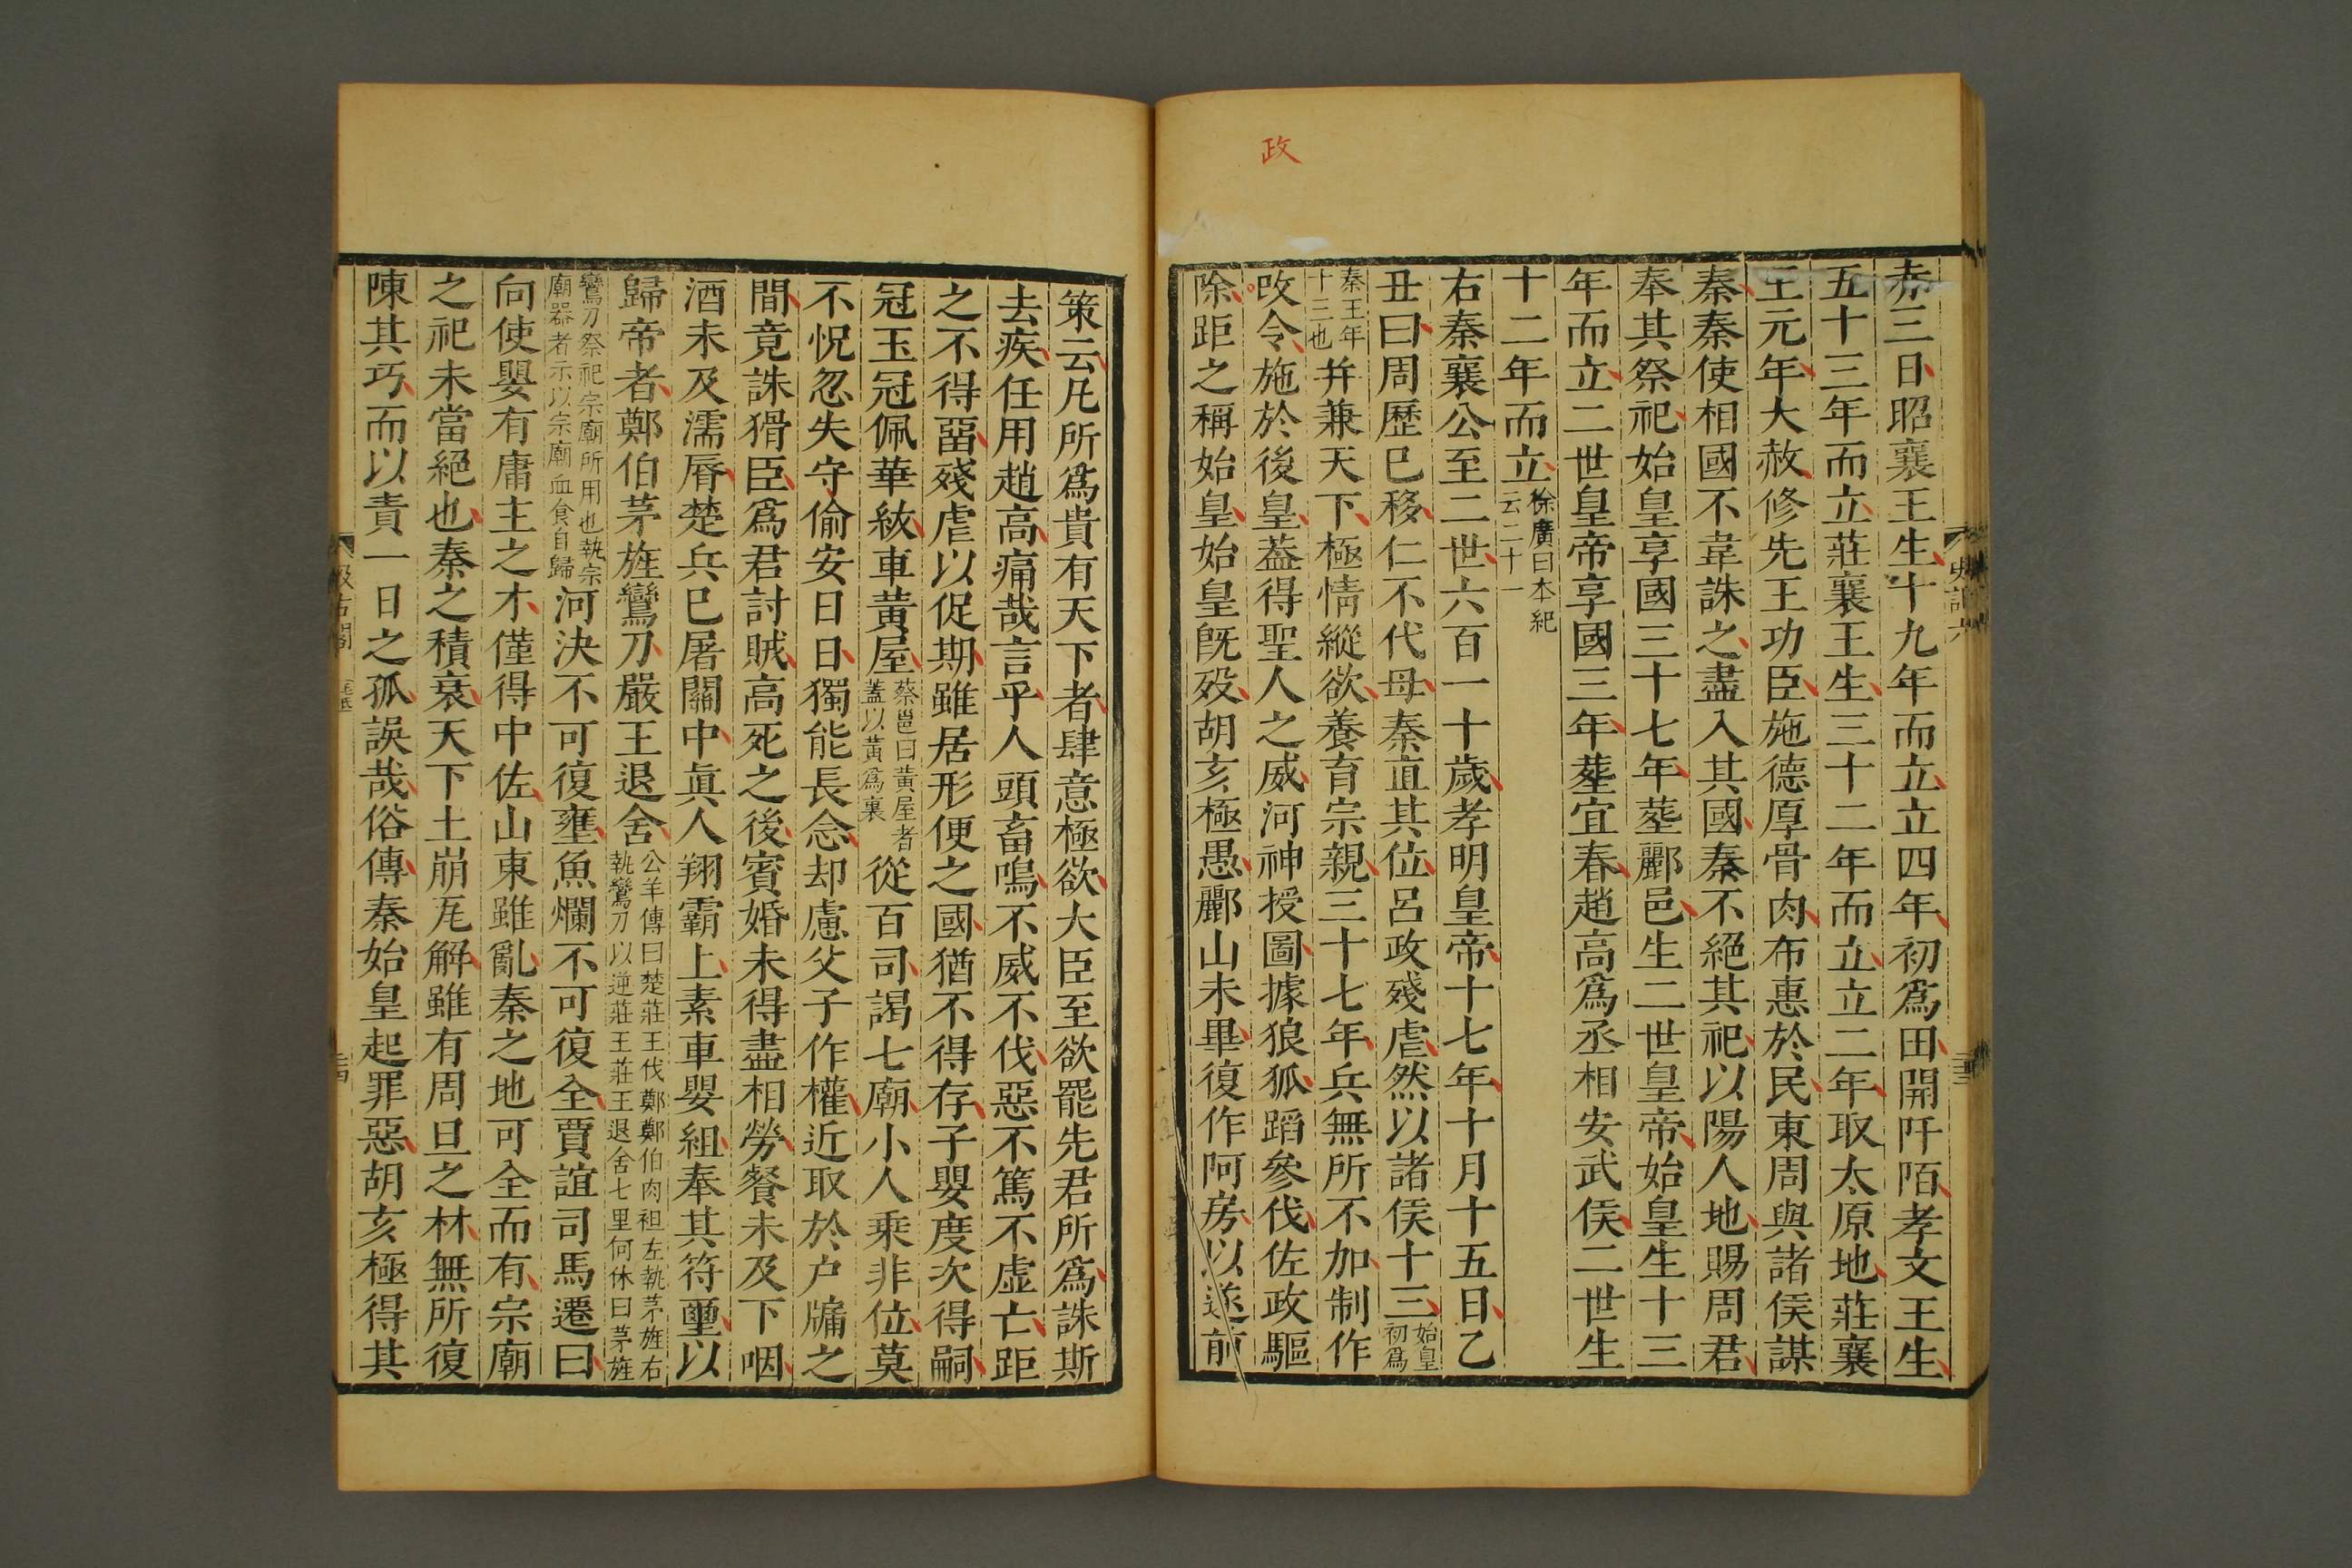 政
赤三日昭襄王生十九年而立立四年初爲田開阡陌孝文王生
五十三年而立莊襄王生三十二年而立立二年取太原地莊襄
王元年大赦修先王功臣施德厚骨肉布惠於民東周與諸侯謀
秦秦使相國不韋誅之盡入其國秦不絕其祀以陽人地賜周君
奉其祭祀始皇享國三十七年葬酈邑生二世皇帝始皇生十三
年而立二世皇帝享國三年葬宜春趙高爲丞相安武侯二世生
十二年而立徐廣曰本紀云二十一
右秦襄公至二世六百一十歲孝明皇帝十七年十月十五日乙
丑曰周歷已移仁不代母秦直其位呂政殘虐然以諸侯十三始皇初爲
秦王年十三也并兼天下極情縱欲養育宗親三十七年兵無所不加制作
政令施於後皇蓋得聖人之威河神授圖據狼狐蹈參伐佐政驅
除距之稱始皇始皇既歿胡亥極愚酈山未畢復作阿房以遂前
史記六
策云凡所爲貴有天下者肆意極欲大臣至欲罷先君所爲誅斯
去疾任用趙高痛哉言乎人頭畜鳴不威不伐惡不篤不虛亡距
之不得畱殘虐以促期雖居形便之國猶不得存子嬰度次得嗣
冠玉冠佩華紱車黃屋蔡邕曰黃屋者蓋以黃爲裏從百司謁七廟小人乘非位莫
不怳忽失守偷安日日獨能長念却慮父子作權近取於户牖之
間竟誅猾臣爲君討賊高死之後賓婚未得盡相勞餐未及下咽
酒未及濡脣楚兵已屠關中眞人翔霸上素車嬰組奉其符璽以
歸帝者鄭伯茅旌鸞刀嚴王退舍公羊傳曰楚莊王伐鄭鄭伯肉袒左執茅旌右執鸞刀以逆莊王莊王退舍七里何休曰茅旌
鸞刀祭祀宗廟所用也執宗廟器者示以宗廟血食自歸河決不可復壅魚爛不可復全賈誼司馬遷曰
向使嬰有庸主之才僅得中佐山東雖亂秦之地可全而有宗廟
之祀未當絕也秦之積衰天下土崩瓦解雖有周旦之材無所復
陳其巧而以責一日之孤誤哉俗傳秦始皇起罪惡胡亥極得其
汲古閣